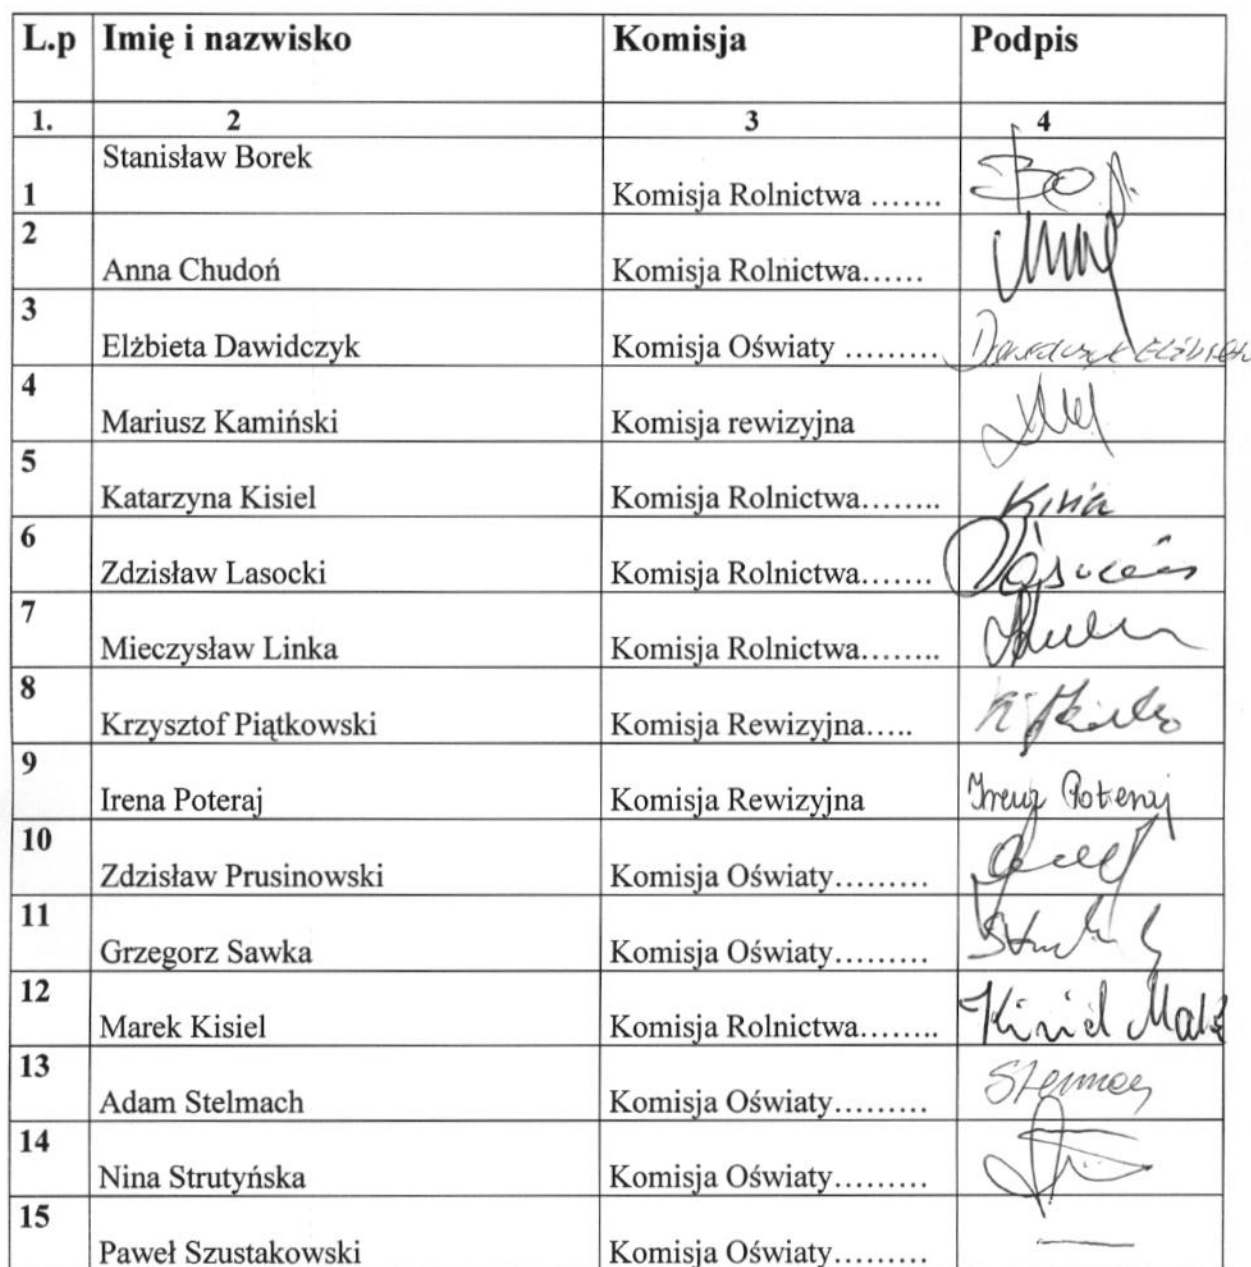 L.p Imię i nazwisko Komisja Podpis
1. 2 3 4
1 Stanisław Borek Komisja Rolnictwa .......
2 Anna Chudoń Komisja Rolnictwa......
3 Elżbieta Dawidczyk Komisja Oświaty ......... Dawidczyk Elżbieta
4 Mariusz Kamiński Komisja rewizyjna
5 Katarzyna Kisiel Komisja Rolnictwa........
6 Zdzisław Lasocki Komisja Rolnictwa.......
7 Mieczysław Linka Komisja Rolnictwa........
8 Krzysztof Piątkowski Komisja Rewizyjna.....
9 Irena Poteraj Komisja Rewizyjna Irena Poteraj
10 Zdzisław Prusinowski Komisja Oświaty.........
11 Grzegorz Sawka Komisja Oświaty.........
12 Marek Kisiel Komisja Rolnictwa........ Kisiel
13 Adam Stelmach Komisja Oświaty.........
14 Nina Strutyńska Komisja Oświaty.........
15 Paweł Szustakowski Komisja Oświaty......... —